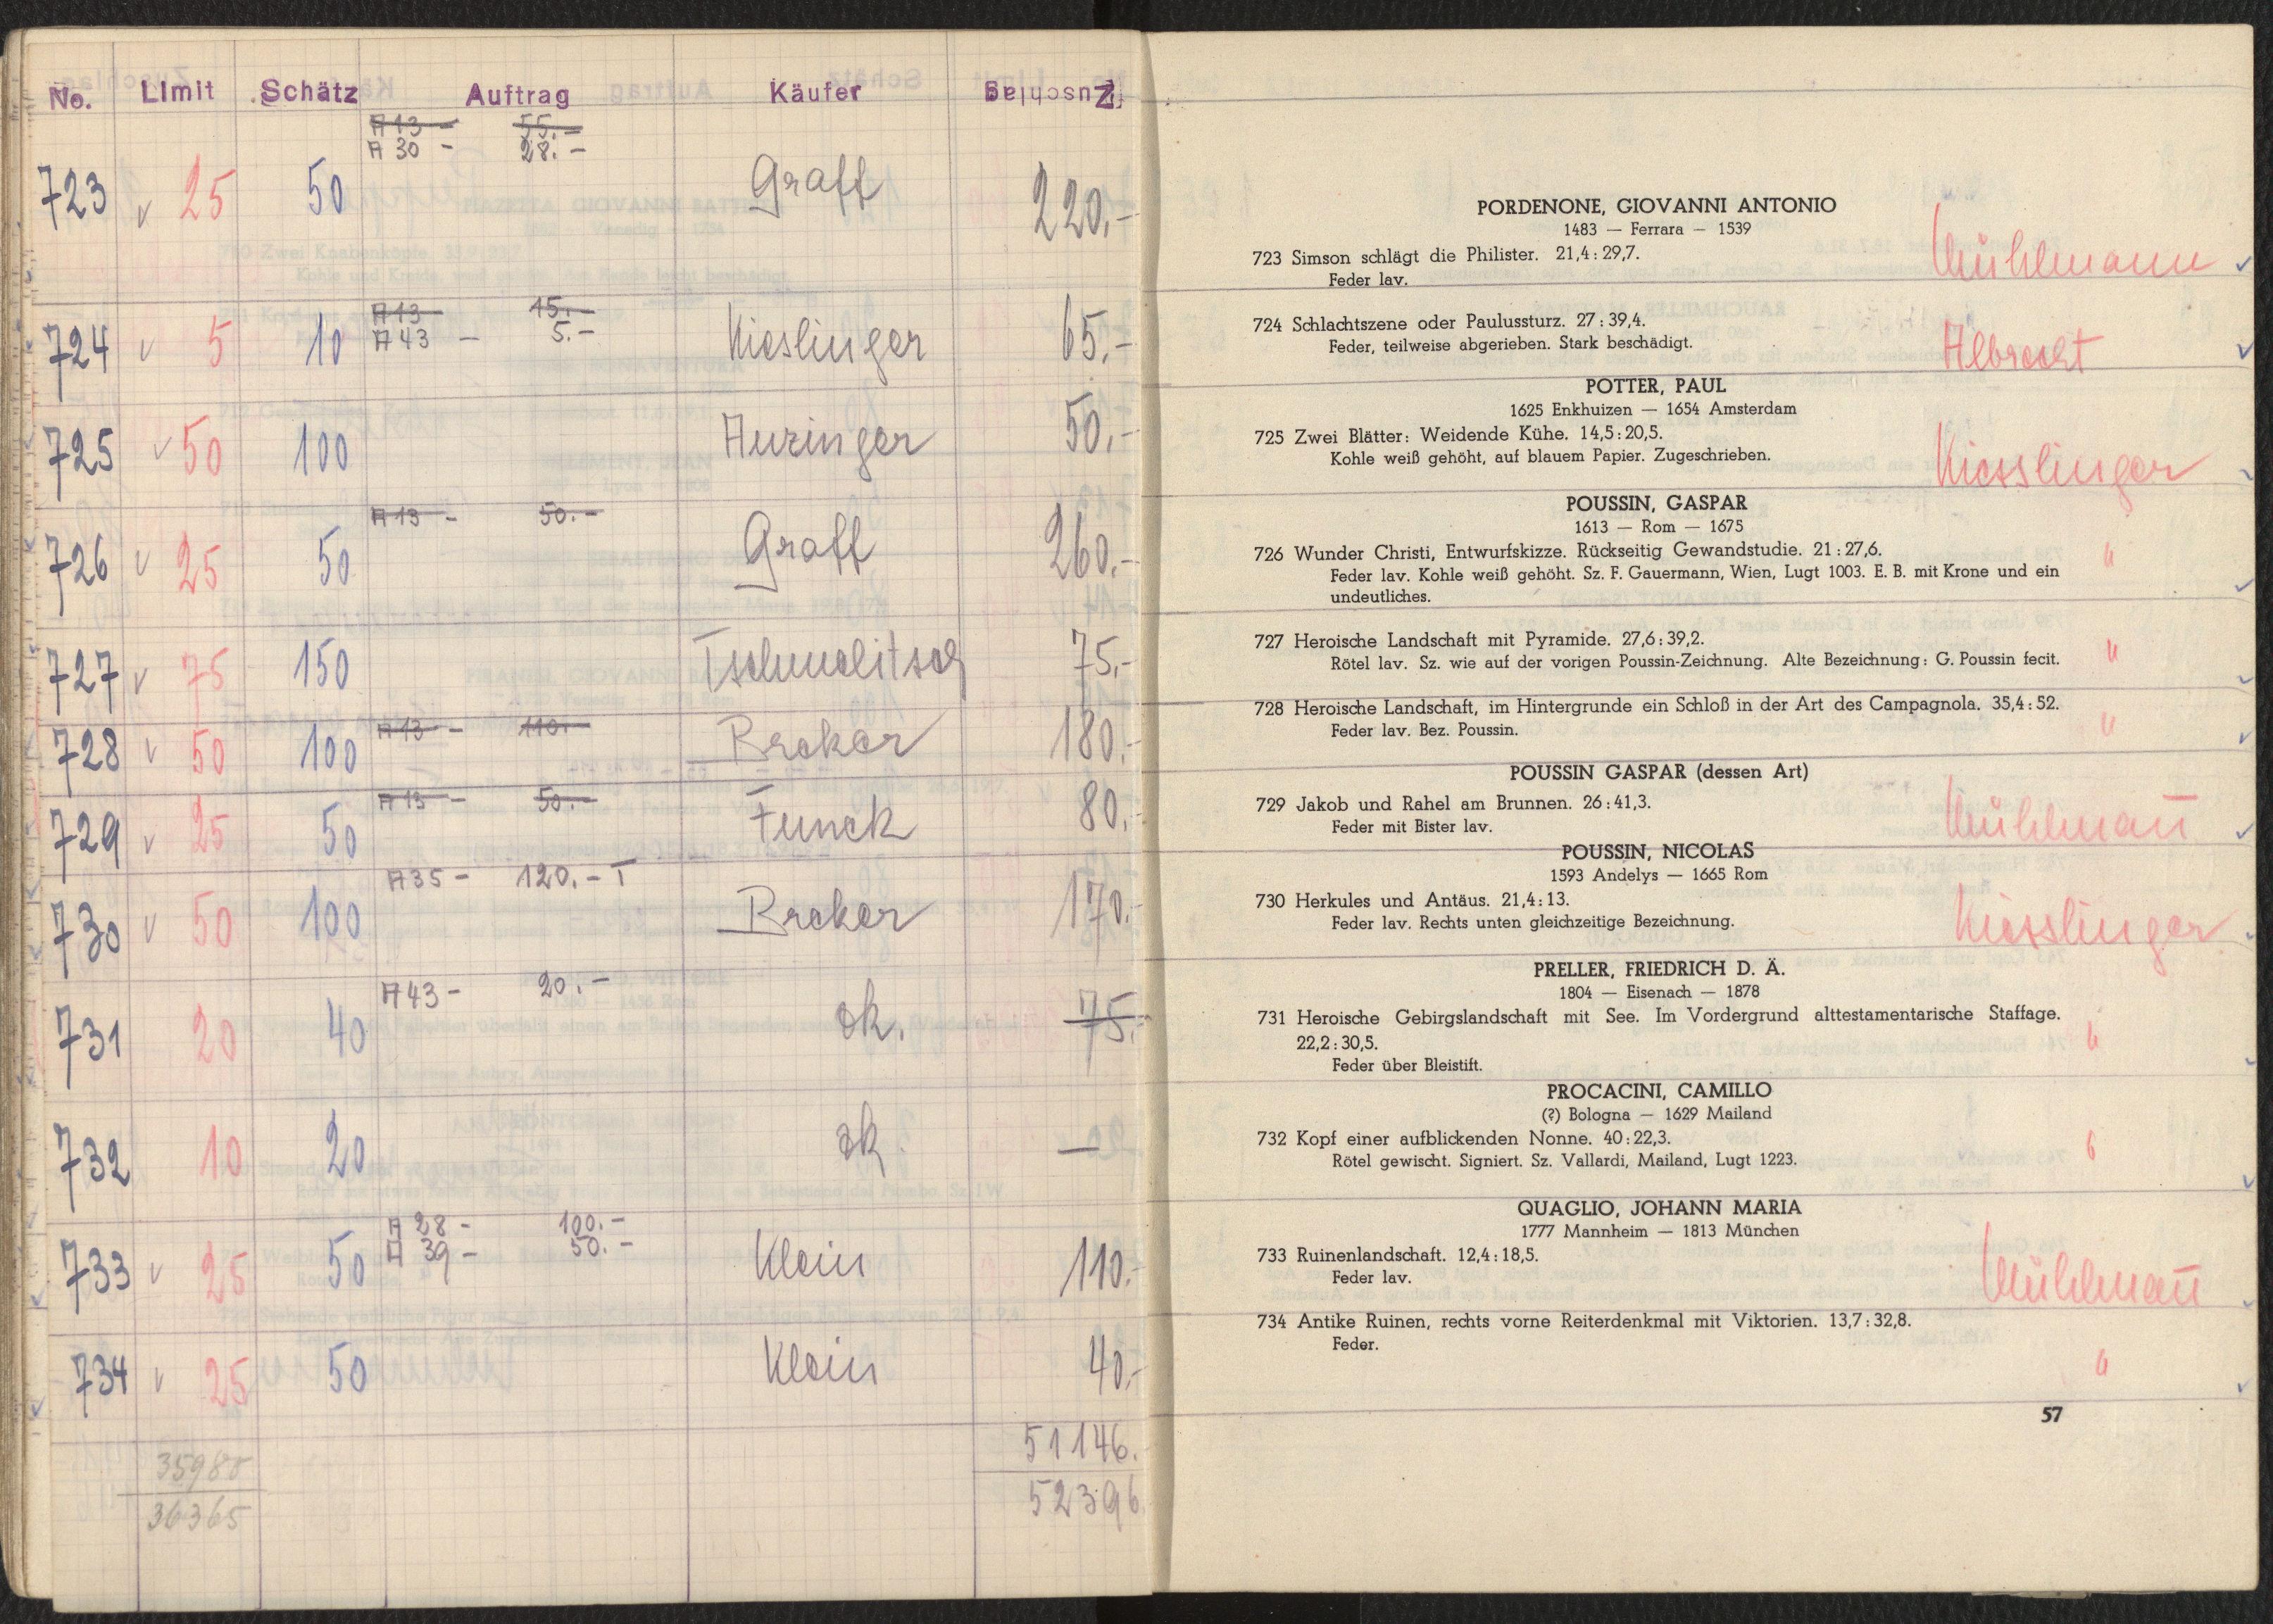 No. Limit Schätz Auftrag Käufer Zuschlag
A 13 - 55.-
A 30 - 28.-
723 25 50 Graff 220.-
A 13 - 15.-
A 43 - 5.-
724 5 10 Kieslinger 65.-
725 50 100 50.-
A 13 - 50.-
726 25 50 Graff 260.-
727 75 150 75.-
A 13 - 110.-
728 50 100 Breker 180.-
A 13 - 50.-
729 25 50 Funck 80.-
A 35 - 120.- T
730 50 100 Breker 170.-
A 43 - 20.-
731 20 40 zk. 75.-
732 10 20 zk. —
A 28 - 100.-
A 39 - 50.-
733 25 50 Klein 110.-
734 25 50 Klein 40.-
35980 51146.
36365 52396
PORDENONE, GIOVANNI ANTONIO
1483 — Ferrara — 1539
723 Simson schlägt die Philister. 21,4:29,7. Mühlmann
Feder lav.
724 Schlachtszene oder Paulussturz. 27:39,4. Albrecht
Feder, teilweise abgerieben. Stark beschädigt.
POTTER, PAUL
1625 Enkhuizen — 1654 Amsterdam
725 Zwei Blätter: Weidende Kühe. 14,5:20,5. Kiesslinger
Kohle weiß gehöht, auf blauem Papier. Zugeschrieben.
POUSSIN, GASPAR
1613 — Rom — 1675
726 Wunder Christi, Entwurfskizze. Rückseitig Gewandstudie. 21:27,6. "
Feder lav. Kohle weiß gehöht. Sz. F. Gauermann, Wien, Lugt 1003. E. B. mit Krone und ein
undeutliches.
727 Heroische Landschaft mit Pyramide. 27,6:39,2. "
Rötel lav. Sz. wie auf der vorigen Poussin-Zeichnung. Alte Bezeichnung: G. Poussin fecit.
728 Heroische Landschaft, im Hintergrunde ein Schloß in der Art des Campagnola. 35,4:52. "
Feder lav. Bez. Poussin.
POUSSIN GASPAR (dessen Art)
729 Jakob und Rahel am Brunnen. 26:41,3. Mühlmañ
Feder mit Bister lav.
POUSSIN, NICOLAS
1593 Andelys — 1665 Rom
730 Herkules und Antäus. 21,4:13. Kiesslinger
Feder lav. Rechts unten gleichzeitige Bezeichnung.
PRELLER, FRIEDRICH D. Ä.
1804 — Eisenach — 1878
731 Heroische Gebirgslandschaft mit See. Im Vordergrund alttestamentarische Staffage. "
22,2:30,5.
Feder über Bleistift.
PROCACINI, CAMILLO
(?) Bologna — 1629 Mailand
732 Kopf einer aufblickenden Nonne. 40:22,3. "
Rötel gewischt. Signiert. Sz. Vallardi, Mailand, Lugt 1223.
QUAGLIO, JOHANN MARIA
1777 Mannheim — 1813 München
733 Ruinenlandschaft. 12,4:18,5. Mühlmañ
Feder lav.
734 Antike Ruinen, rechts vorne Reiterdenkmal mit Viktorien. 13,7:32,8. "
Feder.
57